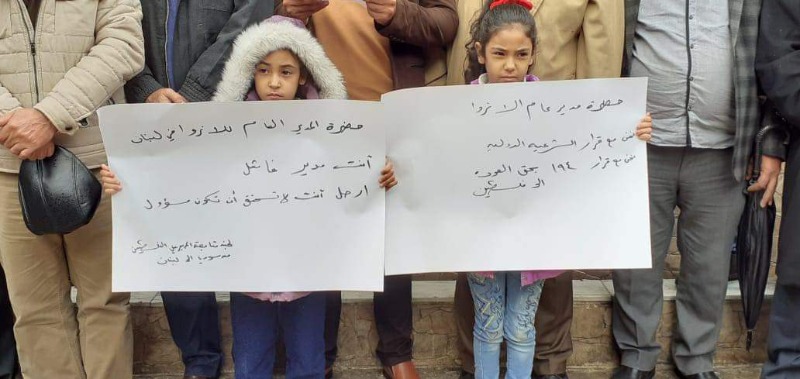 حضرة المدير العام للانروا في لبنان
أنت مدير فاشل
ارحل أنت لا تستحق أن تكون مسؤول
لجنة متابعة المهجرين الفلسطينيين
من سوريا الى لبنان
حضرة مدير عام الانروا
نحن مع قرار الشرعيه الدوليه
نحن مع قرار ١٩٤ بحق العوده
الى فلسطين